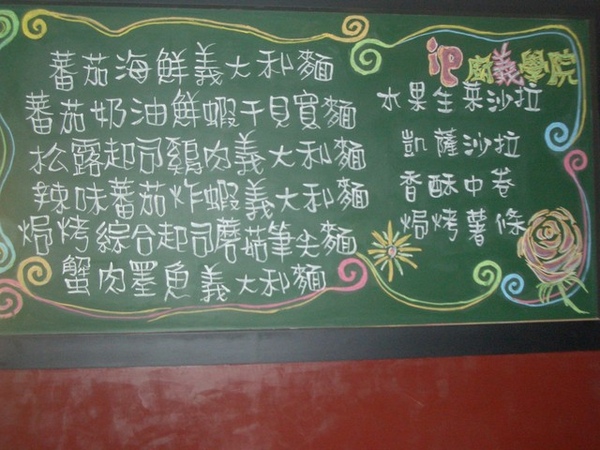 蕃茄海鮮義大利麵
蕃茄奶油鮮蝦干貝寬麵
松露起司鷄肉義大利麵
辣味蕃茄炸蝦義大利麵
焗烤綜合起司蘑菇筆尖麵
蟹肉墨魚義大利麵
ip 義學院
水果生菜沙拉
凱薩沙拉
香酥中卷
焗烤薯條